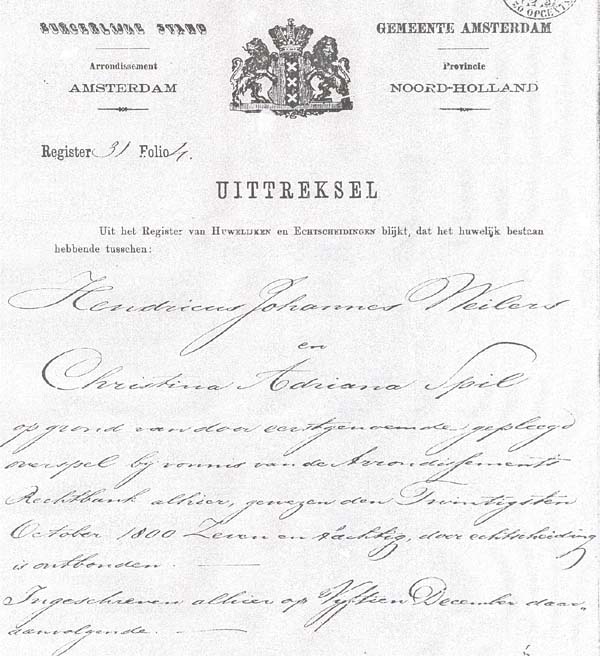 BURGERLIJKE STAND
GEMEENTE AMSTERDAM
Arrondissement
AMSTERDAM
Provincie
NOORD-HOLLAND
Register 31 Folio 4.
UITTREKSEL
Uit het Register van HUWELIJKEN en ECHTSCHEIDINGEN blijkt, dat het huwelijk bestaan
hebbende tusschen:
Hendricus Johannes Weilers
en
Christina Adriana Spil
op grond van door eerstgenoemde gepleegd
overspel bij vonnis van de Arrondissements
Rechtbank alhier, gewezen den Twintigsten
October 1800 Zeven en tachtig, door echtscheiding
is ontbonden.
Ingeschreven alhier op Vyftien December daar-
aanvolgende.